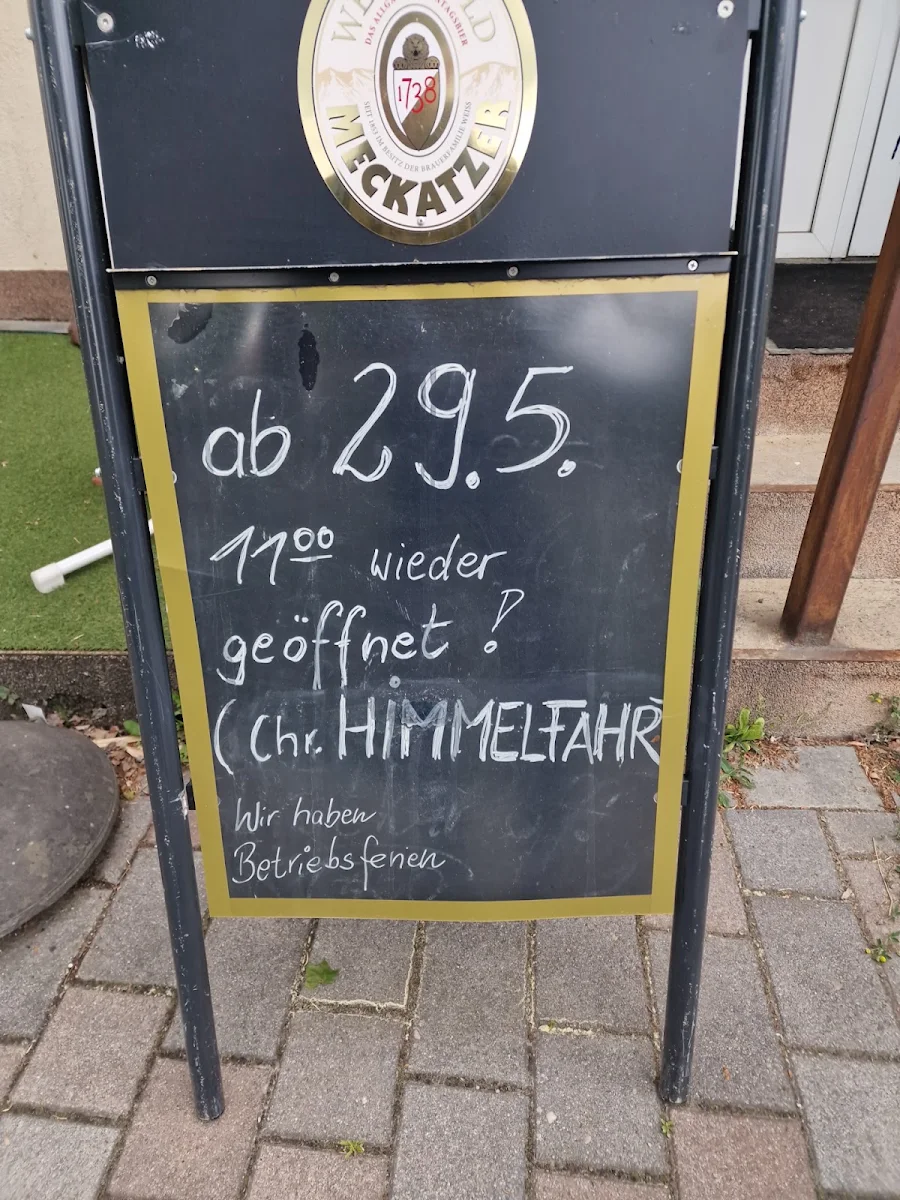 DAS ALLG
NTAGSBIER
1738
SEIT 1853 IM BESITZ DER BRAUERFAMILIE WEISS
MECKATZER
ab 29.5.
11⁰⁰ wieder
geöffnet!
(Chr. HIMMELFAHRT
Wir haben
Betriebsferien